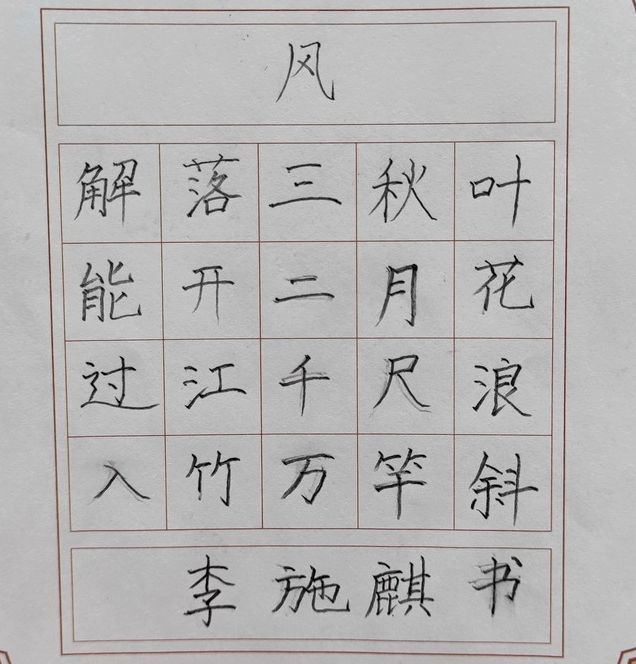 风
解落三秋叶
能开二月花
过江千尺浪
入竹万竿斜
李施麒书